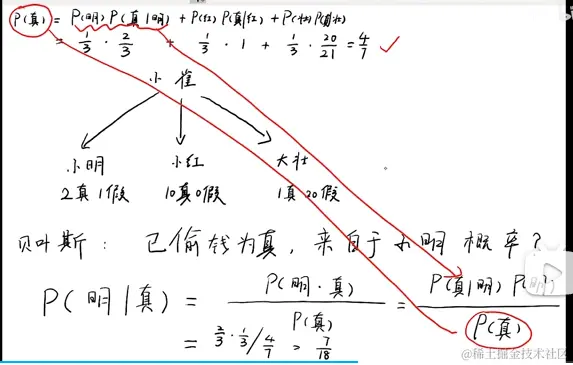 P(真) = P(明)P(真|明) + P(红)P(真|红) + P(壮)P(真|壮)
= 1/3 · 2/3 + 1/3 · 1 + 1/3 · 20/21 = 4/7 ✓
小崔
小明 小红 大壮
2真1假 10真0假 1真20假
贝叶斯: 已偷钱为真, 来自于小明概率?
P(明|真) = P(明·真) / P(真) = P(真|明) P( ) / P(真)
= 2/3 · 1/3 / 4/7 = 7/18
@稀土掘金技术社区